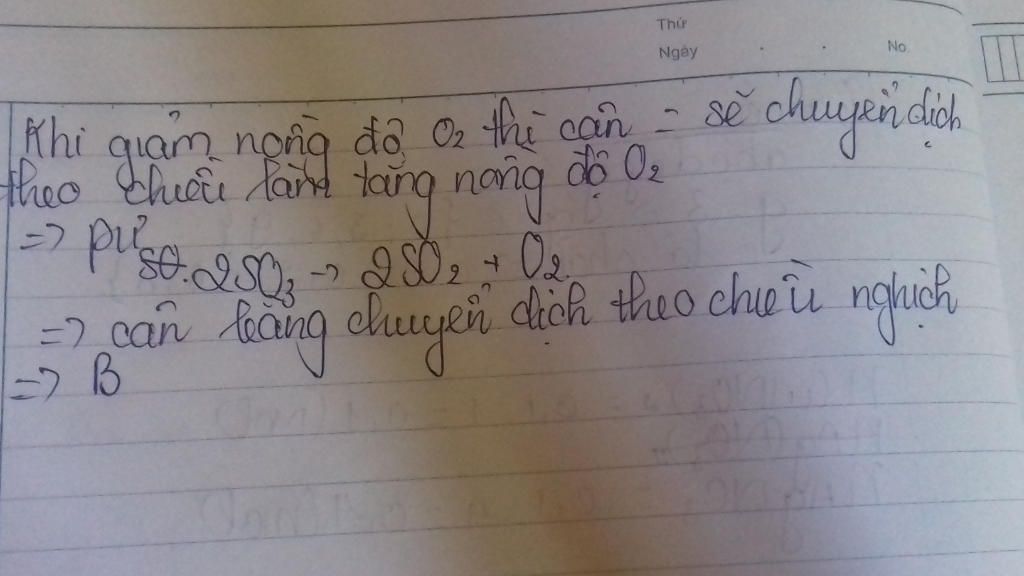 Thứ
Ngày . . No
Khi giảm nồng độ O₂ thì cân = sẽ chuyển dịch
theo chiều làm tăng nồng độ O₂
=> pư
2SO₃ -> 2SO₂ + O₂
=> cân bằng chuyển dịch theo chiều nghịch
=> B